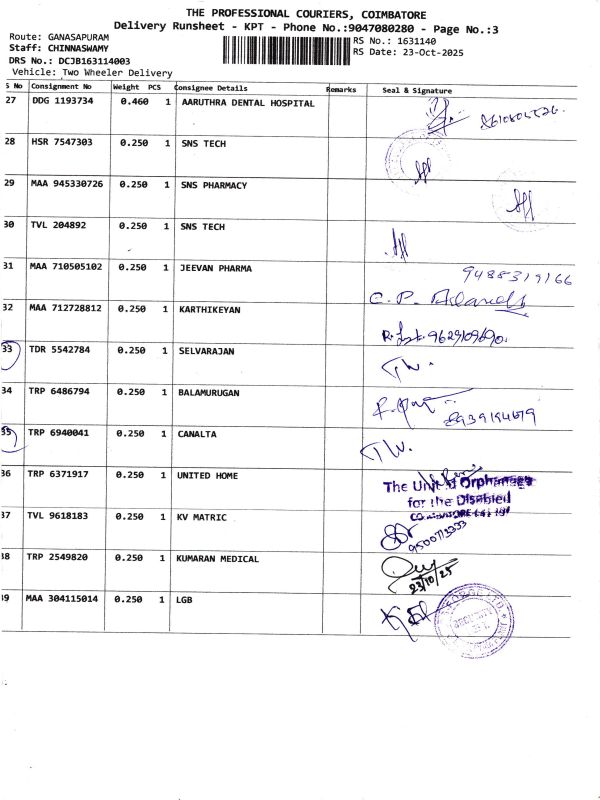 THE PROFESSIONAL COURIERS, COIMBATORE
Delivery Runsheet - KPT - Phone No.:9047080280 - Page No.:3
Route: GANASAPURAM
RS No.: 1631140
Staff: CHINNASWAMY
RS Date: 23-Oct-2025
DRS No.: DCJB163114003
Vehicle: Two Wheeler Delivery
S No Consignment No Weight PCS Consignee Details Remarks Seal & Signature
27 DDG 1193734 0.460 1 AARUTHRA DENTAL HOSPITAL
28 HSR 7547303 0.250 1 SNS TECH
29 MAA 945330726 0.250 1 SNS PHARMACY
30 TVL 204892 0.250 1 SNS TECH
31 MAA 710505102 0.250 1 JEEVAN PHARMA 9488319166
C. P.
32 MAA 712728812 0.250 1 KARTHIKEYAN
9629109690
33 TDR 5542784 0.250 1 SELVARAJAN
T W.
34 TRP 6486794 0.250 1 BALAMURUGAN
35 TRP 6940041 0.250 1 CANALTA
T W.
36 TRP 6371917 0.250 1 UNITED HOME
The United Orphanage
for the Disabled
37 TVL 9618183 0.250 1 KV MATRIC
9500713333
38 TRP 2549820 0.250 1 KUMARAN MEDICAL
23/10/25
39 MAA 304115014 0.250 1 LGB